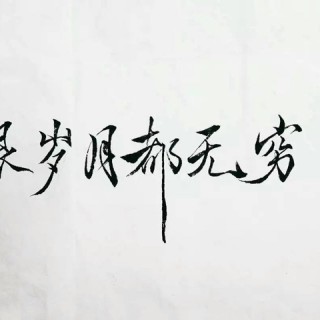 岁月都无穷